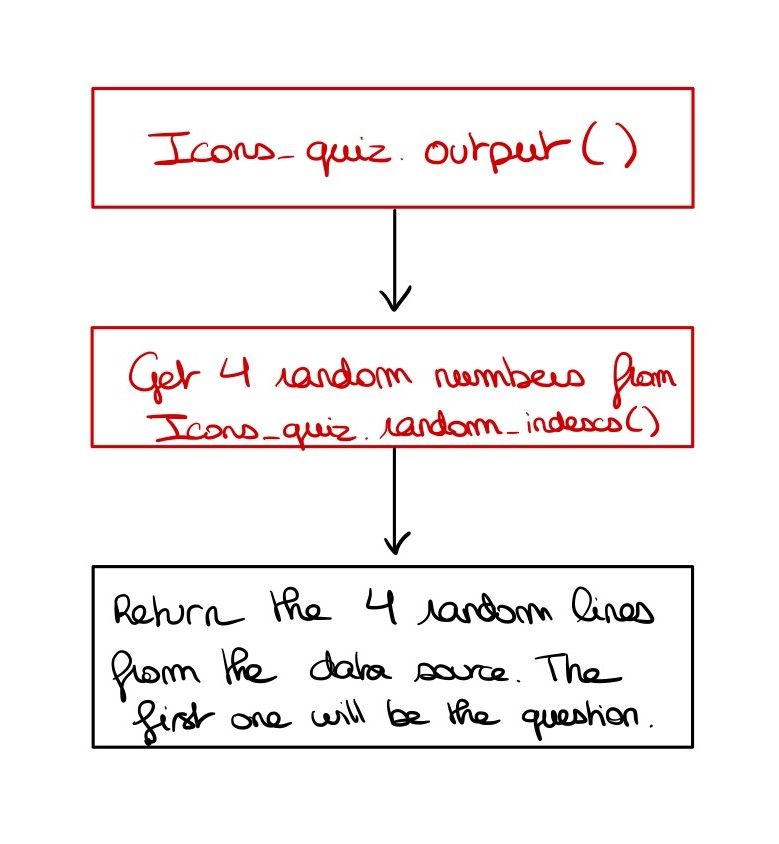 Icons_quiz.output()
Get 4 random numbers from
Icons_quiz.random_indexes()
Return the 4 random lines
from the data source. The
first one will be the question.